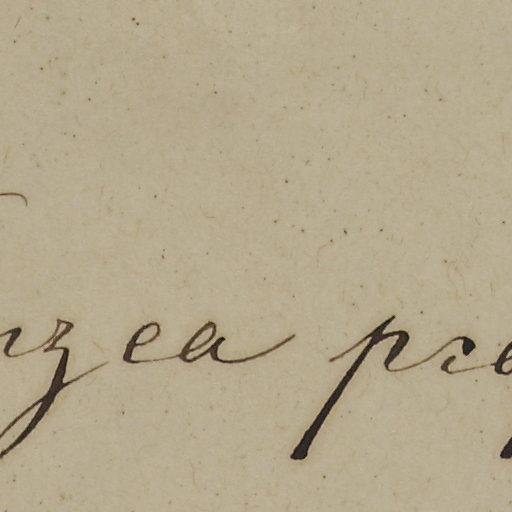 rzea pre